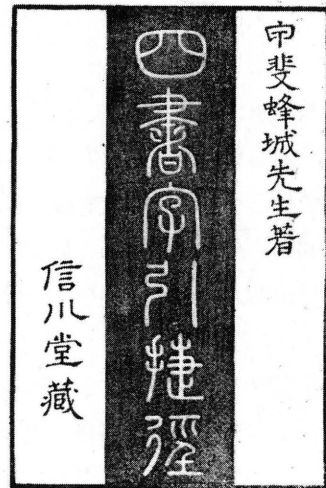 甲斐蜂城先生著
四書字引捷徑
信川堂藏